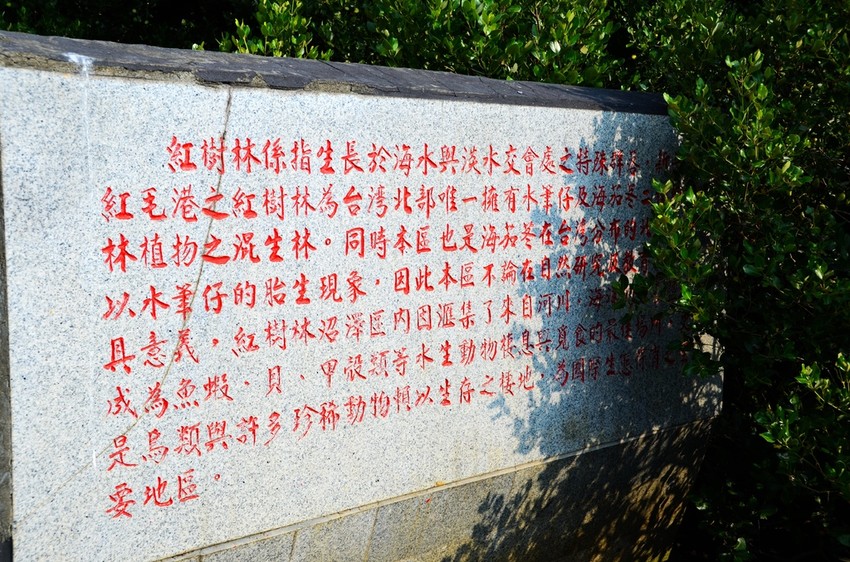 紅樹林係指生長於海水與淡水交會處之特殊
紅毛港之紅樹林為台灣北部唯一擁有水筆仔及海茄苳之
林植物之混生林。同時本區也是海茄苳在台灣分布的北
以水筆仔的胎生現象，因此本區不論在自然研究及教育
具意義，紅樹林沼澤區内因滙集了來自河川，海
成為魚蝦、貝、甲殼類等水生動物棲息與覓食的最佳場所，
是鳥類與許多珍稀動物賴以生存之棲地，為國際生態保育之
要地區。